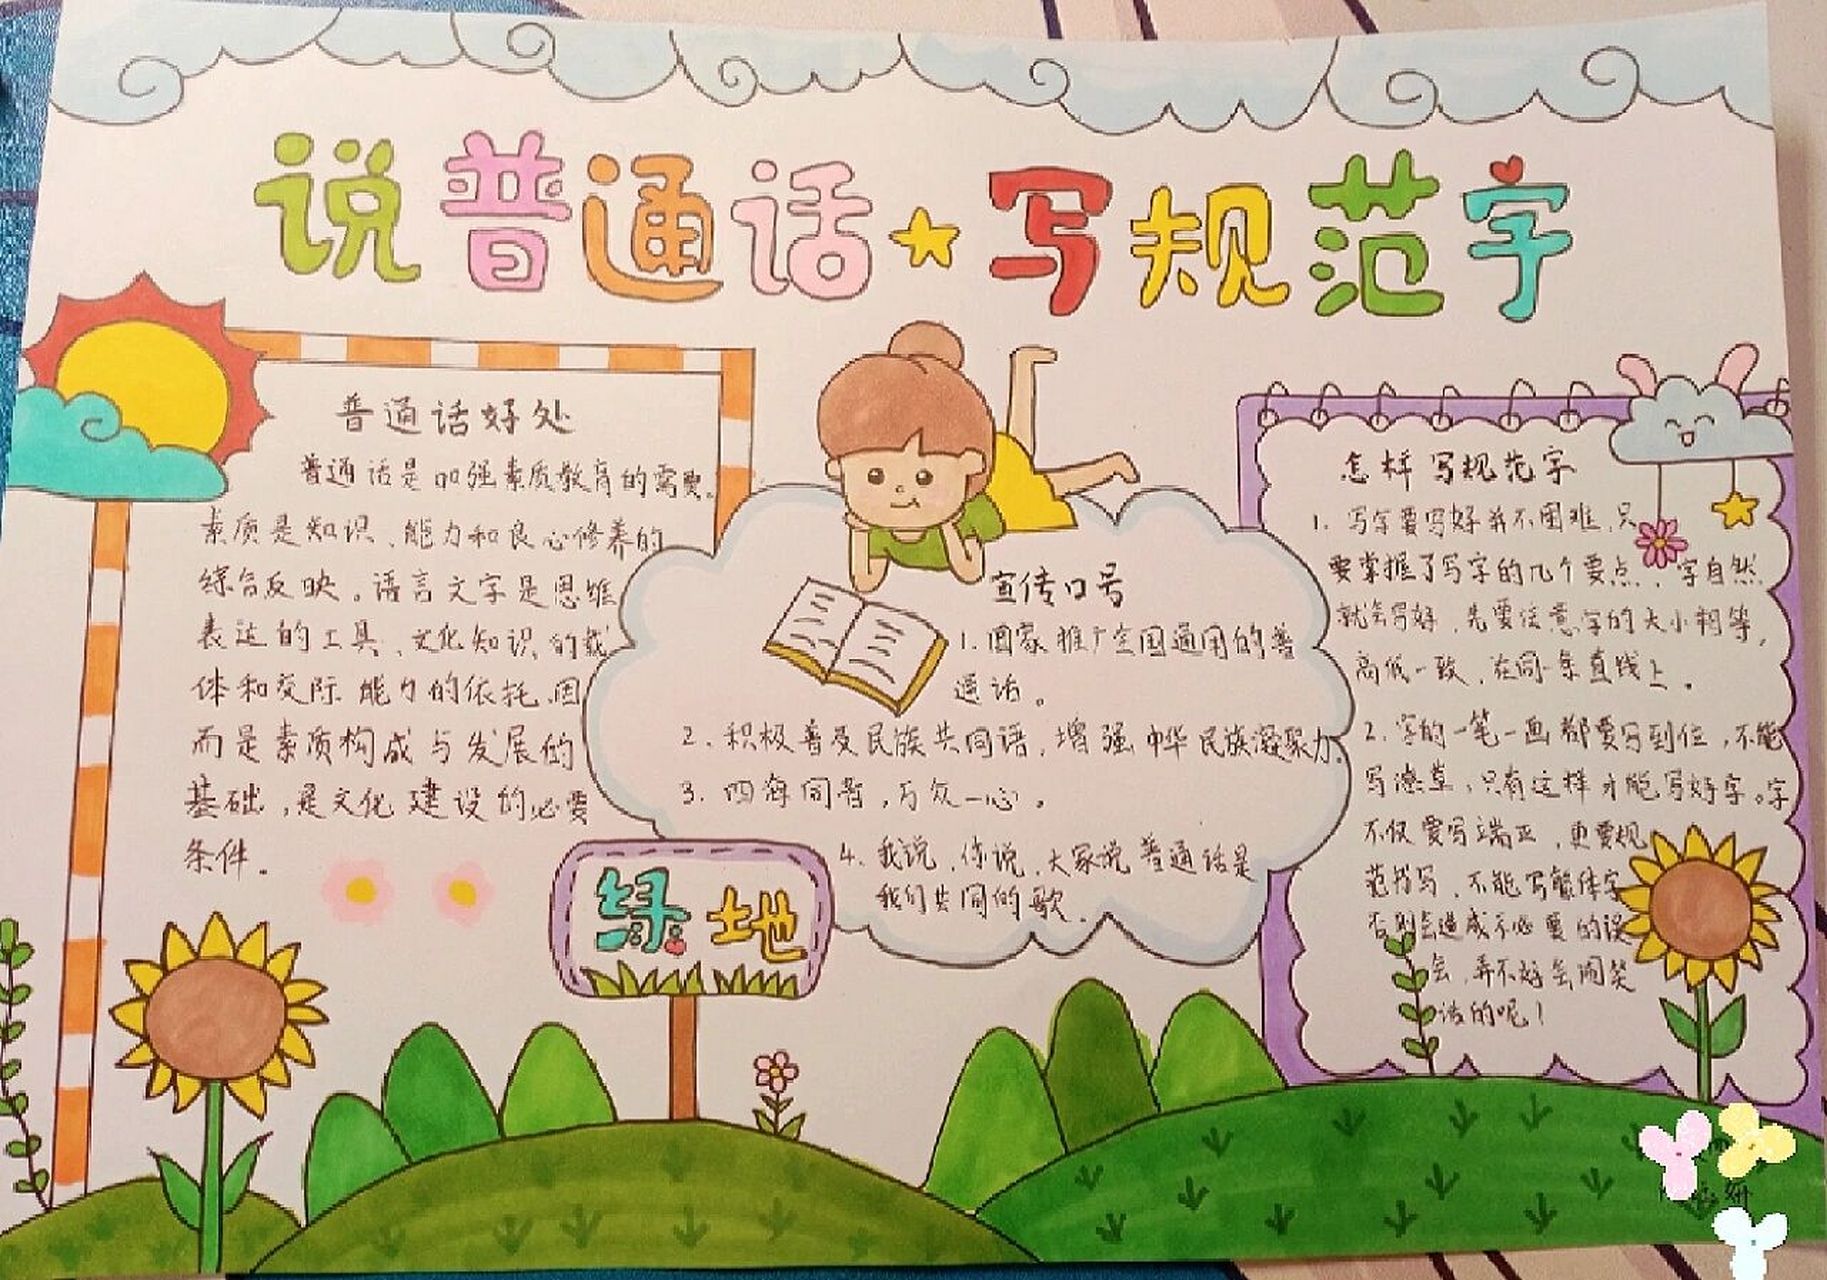 说普通话★写规范字
普通话好处
普通话是加强素质教育的需要。
素质是知识、能力和良心修养的
综合反映。语言文字是思维
表达的工具、文化知识的载
体和交际能力的依托,因
而是素质构成与发展的
基础,是文化建设的必要
条件。
宣传口号
1.国家推广全国通用的普
通话。
2.积极普及民族共同语,增强中华民族凝聚力。
3.四海同音,万众一心。
4.我说,你说,大家说普通话是
我们共同的歌.
绿地
怎样写规范字
1.写字要写好并不困难,只
要掌握了写字的几个要点,字自然
就会写好,先要注意字的大小相等,
高低一致,在同一条直线上。
2.字的一笔一画都要写到位,不能
写潦草,只有这样才能写好字。字
不仅要写端正,更要规
范书写,不能写繁体字
否则会造成不必要的误
会,弄不好会闹笑
话的呢!